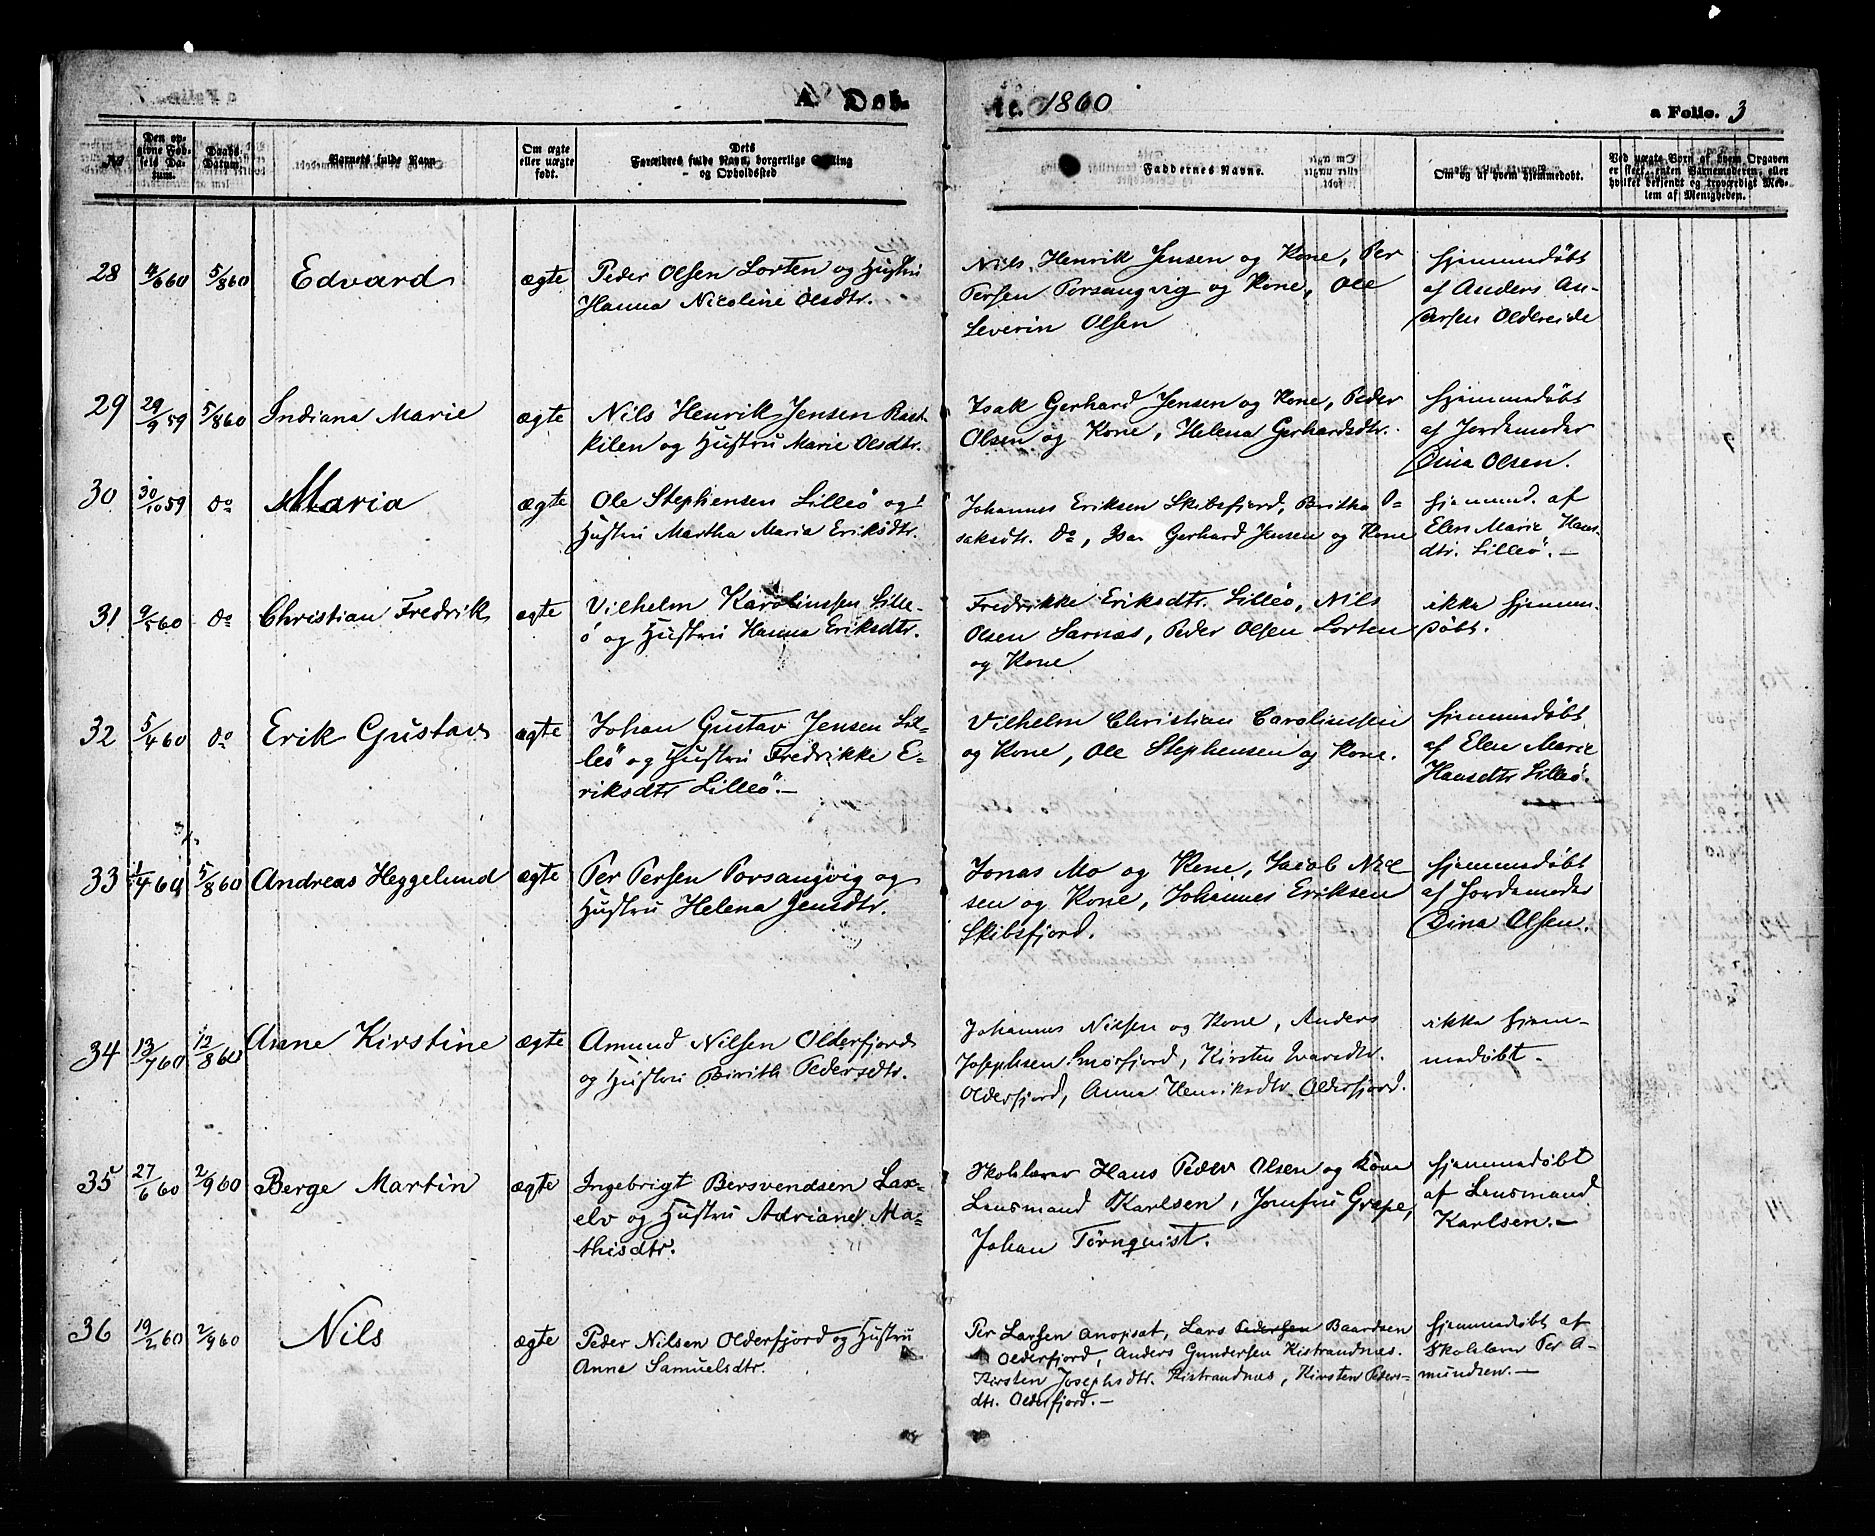 A Døbte. 1860 a Folio. 3
No
Den opgivne Fødsels Datum.
Daabs Datum.
Barnets fulde Navn
Om ægte eller uægte født.
Dets Forældres fulde Navn, borgerlige Stilling og Opholdssted
Faddernes Navne.
Om og af hvem hjemmedøbt.
Ved uægte Børn af hvem Opgaven er skeet, enten Barnemoderen, eller hvilket bekjendt og troværdigt Medlem af Menigheden.
28 4/6 60 5/8 60 Edvard ægte Peder Olsen Lorten og Hustru
Hanna Nicoline Olsdtr.
Nils Henrik Jensen og Kone, Per
Persen Porsangvig og Kone, Ole
Severin Olsen
hjemmedøbt
af Anders An-
dersen Oldereide
29 29/9 59 5/8 60 Indiana Marie ægte Nils Henrik Jensen
kilen og Hustru Marie Olsdtr.
Isak Gerhard Jensen og Kone, Peder
Olsen og Kone, Helena Gerhardsdtr.
hjemmedøbt
af Jordemoder
Dina Olsen.
30 30/10 59 do Maria ægte Ole Stephensen Lilleö og
Hustru Martha Maria Eriksdtr.
Johannes Eriksen Skibsfjord, Britha I-
saksdtr. do, Isa. Gerhard Jensen og Kone
hjemmd. af
Elen Marie Hans-
dtr. Lilleö. —
31 9/5 60 do Christian Fredrik ægte Vilhelm Karolinssen Lille-
ö og Hustru Hanna Eriksdtr.
Fredrikke Eriksdtr. Lilleö, Nils
Olsen Sarnæs, Peder Olsen Lorten
og Kone
ikke hjemm-
døbt.
32 5/4 60 do Erik Gustav ægte Johan Gustav Jensen Lil-
leö og Hustru Fredrikke E-
riksdtr Lilleö. —
Vilhelm Christian Carolinssen
og Kone, Ole Stephensen og Kone.
hjemmedøbt
af Elen Marie
Hansdtr Lilleö.
33 1/4 60 5/8 60 Andreas Heggelund ægte Per Persen Porsangvig og
Hustru Helena Jensdtr.
Jonas Mo og Kone, Jacob Niel
sen og Kone, Johannes Eriksen
Skibsfjord.
hjemmedøbt
af Jordemoder
Dina Olsen.
34 13/7 60 12/8 60 Anne Kirstine ægte Amund Nilsen Olderfjord
og Hustru Birith Pedersdtr.
Johannes Nilsen og Kone, Anders
Josephsen Smørfjord, Kirsten Ivarsdtr.
Olderfjord, Anna Henriksdtr Olderfjord.
ikke hjem-
medøbt —
35 27/6 60 2/9 60 Berge Martin ægte Ingebrigt Bersvendsen Lax-
elv og Hustru Adriane Ma-
thisdtr.
Skolelærer Hans Peder Olsen og Kone
Lensmand Karlsen, Jomfru Grape,
Johan Törnquist.
hjemmedøbt
af Lensmand
Karlsen. —
36 19/2 60 2/9 60 Nils ægte Peder Nilsen Olderfjord og Hustru
Anne Samuelsdtr.
Per Larsen Anopsat, Lars Pedersen Baardsen
Olderfjord, Anders Gundersen Kistrandnæs.
Kirsten Josephsdtr. Kistrandnæs, Kirsten Peders-
dtr. Olderfjord. —
hjemmedøbt af
Skolelærer Per A-
mundsen. —